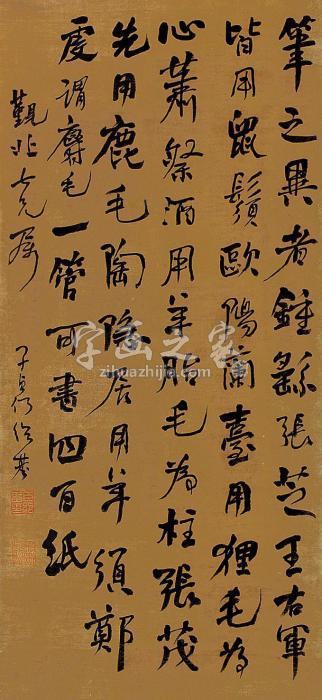 筆之異者鍾繇張芝王右軍
皆用鼠鬚歐陽蘭臺用狸毛為
心蕭祭酒用羊胎毛為柱張茂
先用鹿毛陶隱居用羊須鄭
虔謂麝毛一管可書四百紙
觀北大兄屬
子貞何紹基
字画之家
zihuazhijia.com